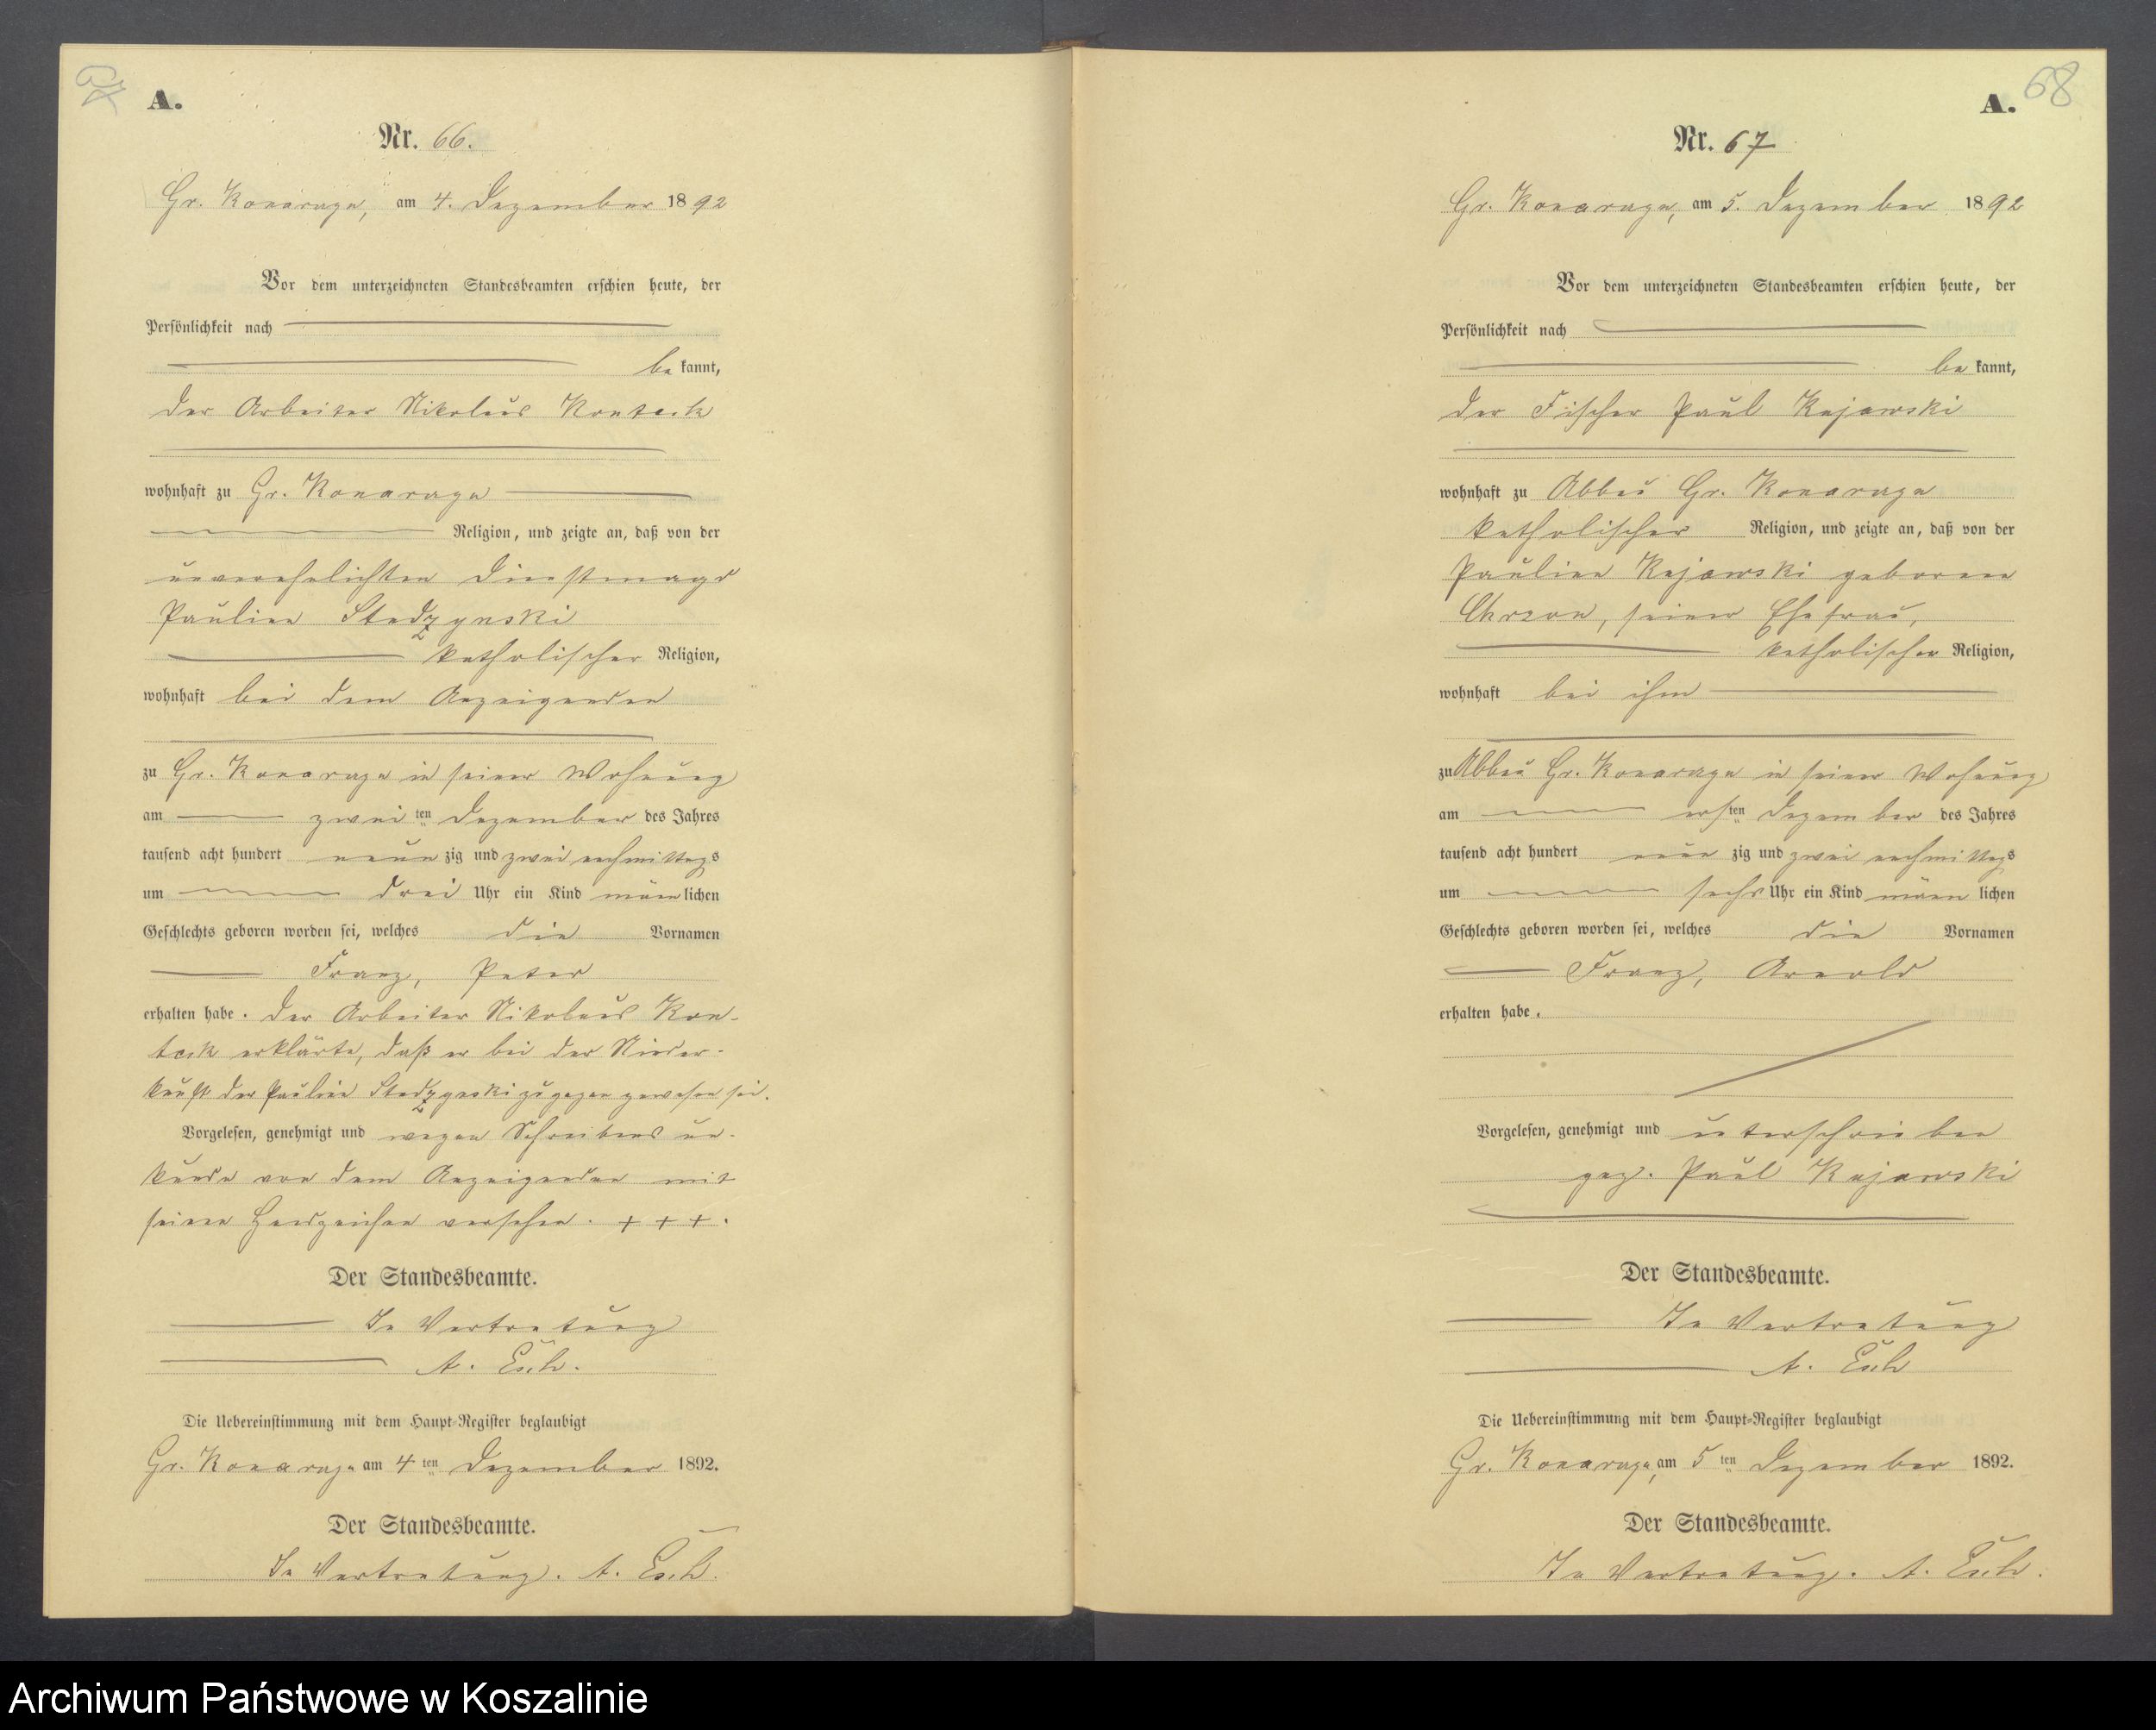 A.
Nr. 66.
Gr. Konarczyn, am 4. Dezember 1892
Vor dem unterzeichneten Standesbeamten erschien heute, der
Persönlichkeit nach
be kannt,
der Arbeiter Nikolaus
wohnhaft zu Gr.
Religion, und zeigte an, daß von der
unverehelichten Dienstmagd
Pauline
katholischer Religion,
wohnhaft bei dem Anzeigenden
zu Gr. in seiner Wohnung
am zwei ten Dezember des Jahres
tausend acht hundert neun zig und zwei nachmittags
um drei Uhr ein Kind männ lichen
Geschlechts geboren worden sei, welches die Vornamen
Franz, Peter
erhalten habe. Der Arbeiter Nikolaus
erklärte, daß er bei der Nieder-
kunft der Pauline zugegen gewesen sei.
Vorgelesen, genehmigt und wegen Schreibens un-
kunde von dem Anzeigenden mit
seinen Handzeichen versehen. + + +.
Der Standesbeamte.
In Vertretung
A.
Die Uebereinstimmung mit dem Haupt-Register beglaubigt
Gr. am 4 ten Dezember 1892.
Der Standesbeamte.
In Vertretung. A.
A. 68
Nr. 67
Gr. am 5. Dezember 1892
Vor dem unterzeichneten Standesbeamten erschien heute, der
Persönlichkeit nach
be kannt,
der Fischer Paul Kujawski
wohnhaft zu Abbau Gr.
katholischer Religion, und zeigte an, daß von der
Pauline Kujawski geborene
seiner Ehefrau,
katholischer Religion,
wohnhaft bei ihm
zu Abbau Gr. in seiner Wohnung
am ersten Dezember des Jahres
tausend acht hundert neun zig und zwei nachmittags
um sechs Uhr ein Kind männ lichen
Geschlechts geboren worden sei, welches die Vornamen
Franz, Arnold
erhalten habe.
Vorgelesen, genehmigt und unterschrieben
gez. Paul Kujawski
Der Standesbeamte.
In Vertretung
A.
Die Uebereinstimmung mit dem Haupt-Register beglaubigt
Gr. am 5 ten Dezember 1892.
Der Standesbeamte.
In Vertretung. A.
Archiwum Państwowe w Koszalinie